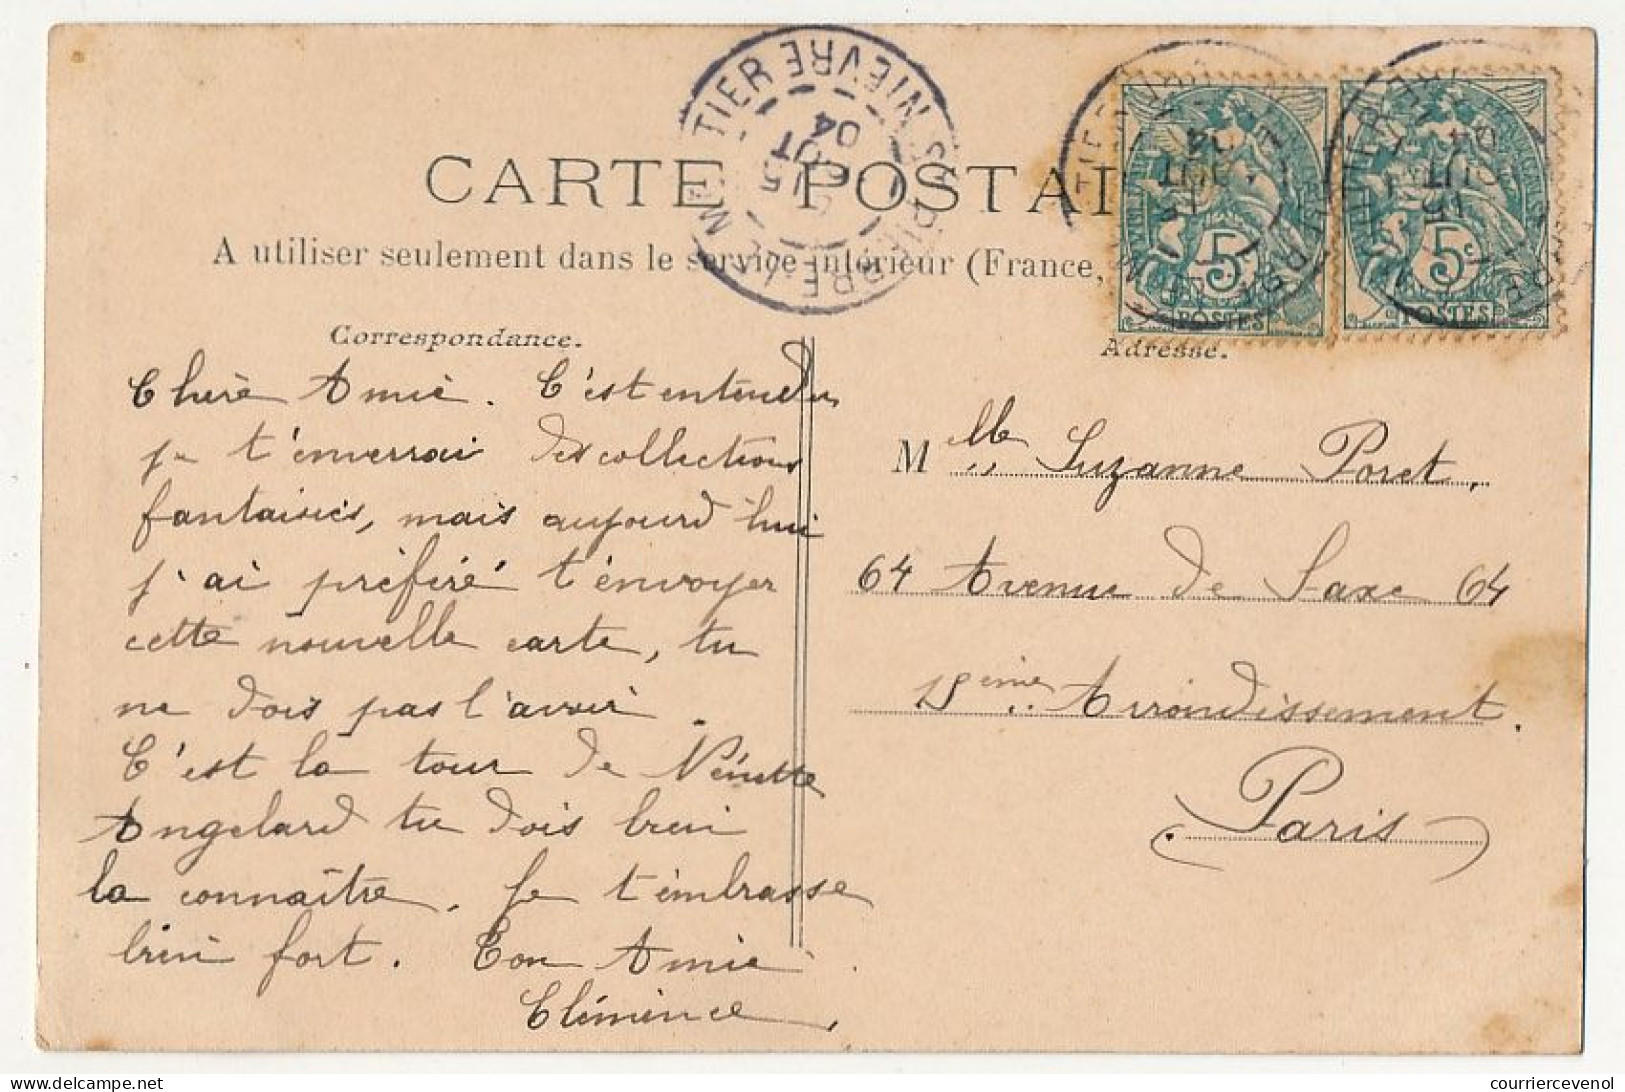 CARTE POSTALE
A utiliser seulement dans le service intérieur (France,
Sᵗ PIERRE-LE-MOUTIER NIEVRE
15
OUT
04
5ᶜ
POSTES
5ᶜ
POSTES
Correspondance.
Chère Amie. C'est entendu
je t'enverrai des collections
fantaisies, mais aujourd'hui
j'ai préféré t'envoyer
cette nouvelle carte, tu
ne dois pas l'avoir.
C'est la tour de
Angelard tu dois bien
la connaître. Je t'embrasse
bien fort. Ton Amie
Clémence,
Adresse.
Mˡˡᵉ Suzanne Poret,
64 Avenue de Saxe 64
15ème Arrondissement.
Paris
courriercevenol
© delcampe.net
courriercevenol